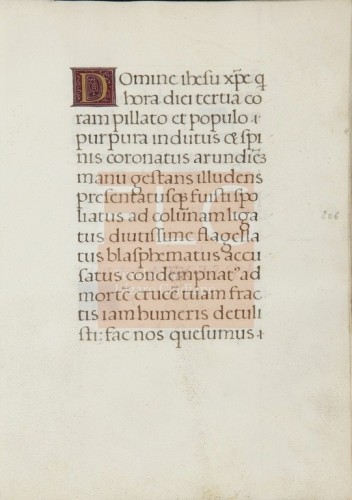 Domine ihesu xp̄e q
hora diei tertia co
ram pillato et populo ⁊
purpura indutus & spi
nis coronatus arundiēȝ
manu gestans illudens
presentatusqȝ fuisti spo
liatus ad colunam liga
tus diutissime flagella
tus blasphematus accu
satus condempnatꝰ ad
morte cruce tuam frac
tis iam humeris detuli
sti: fac nos quesumus ⁊
226